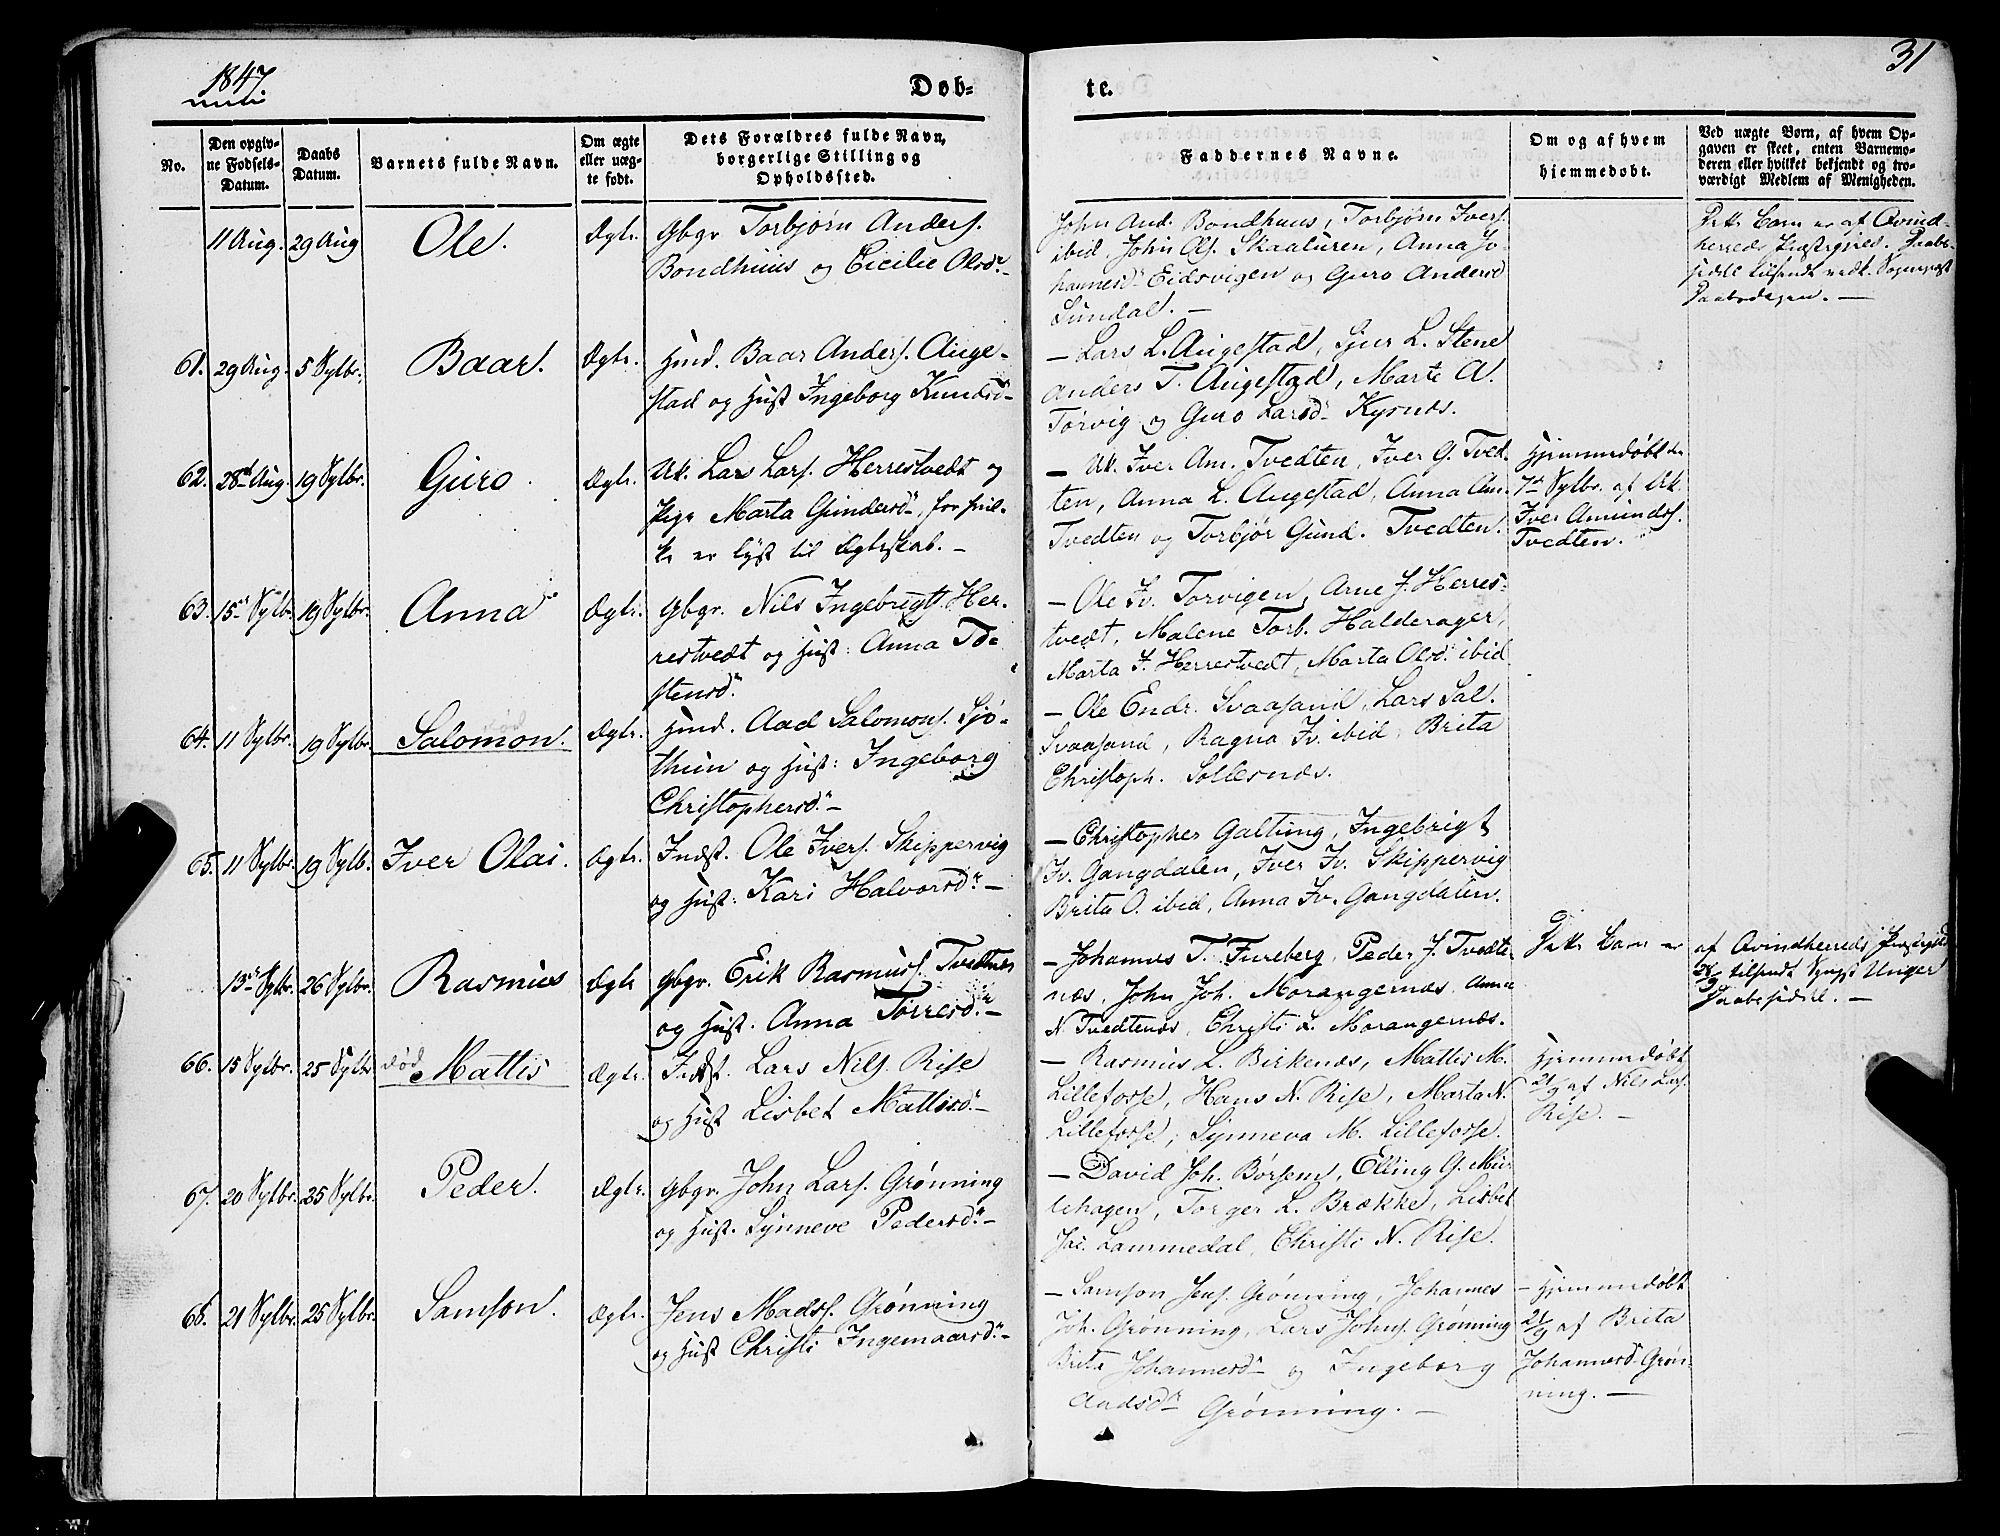 1847.
31
Døb-
te.
No.
Den opgiv-
ne Fødsels-
Datum.
Daabs
Datum.
Barnets fulde Navn.
Om ægte
eller uæg-
te født.
Dets Forældres fulde Navn,
borgerlige Stilling og
Opholdssted.
Faddernes Navne.
Om og af hvem
hjemmedøbt.
Ved uægte Børn, af hvem Op-
gaven er skeet, enten Barnemo-
deren eller hvilket bekjendt og tro-
værdigt Medlem af Menigheden.
11 Aug. 29 Aug Ole. Ægte.
Gbgr Torbjørn Anders.
Bondhuus og Cicilie Olsd.
John And. Bondhuus, Torbjørn Ivers.
ibid, John Ols. Skaaluren, Anna Jo-
hannesd. Eidsvigen og Guro Andersd
Sundal. —
Dette Barn er af Qvind-
herreds Præstegjeld. Daabs-
sedel tilsendt
61. 29 Aug. 5 Sptbr. Baar. Ægte.
Hmd. Baar Anders. Auge-
stad og Hust Ingeborg Knudsd
— Lars L. Augestad, Sjur L. Stene
Anders T. Augestad, Marte A.
Torvig og Guro Larsd. Kysnæs.
62. 28de Aug. 19 Sptbr. Guro. Ægte.
Uk. Lars Lars. Herrestvedt og
Pige Marta Gundersd., for hvil-
ke er lyst til Ægteskab. —
— Uk. Iver Am. Tvedten, Iver G. Tved-
ten, Anna L. Augestad, Anna Am.
Tvedten og Torbjør Gund. Tvedten.
Hjemmedøbt den
7de Sptbr. af Uk.
Iver Amunds.
Tvedten.
63. 15de Sptbr. 19 Sptbr. Anna Ægte.
Gbgr. Nils Ingebrigts. Her-
restvedt og Hust: Anna To-
stensd.
— Ole Iv. Torvigen, Arne J. Herres-
tvedt, Malene Torb. Halderager,
Marta J. Herrestvedt, Marta Olsd. ibid
64. 11 Sptbr. 19 Sptbr. død Salomon. Ægte.
Hmd. Aad Salomons. Sjø-
thun og Hust: Ingeborg
Christophersd. —
— Ole Endr. Svaasand, Lars Sal.
Svaasand, Ragna Iv. ibid, Brita
Christoph. Sollesnæs.
65. 11 Sptbr. 19 Sptb. Iver Olai. Ægte.
Indst. Ole Ivers. Skippervig
og Hust: Kari Halvorsd. —
— Christopher Galtung, Ingebrigt
Iv. Gangdalen, Iver Iv. Skippervig
Brita O. ibid, Anna Iv. Gangdalen.
13de Sptbr. 26 Sptbr. Rasmus Ægte
Gbgr. Erik Rasmuss. Tvedtnes
og Hust. Anna Torresd. —
— Johannes T. Fureberg, Peder J. Tvedte-
næs, John Joh. Morangernæs, Anna
N. Tvedtenæs, Christi L. Morangernæs.
Dette Barn er
af Qvindherreds Præstegjeld
tilsendt Sgnpst Unger
Daabssedel. —
66. 15 Sptbr. 25 Sptbr død Mattis Ægte.
Indst. Lars Nils. Rise
og Hust Lisbet Mattisd. —
— Rasmus L. Birkenæs, Mattis M.
Lillefosse, Hans N. Rise, Marta N.
Lillefosse, Synneva M. Lillefosse.
Hjemmedøbt
21/9 af Nils Lars.
Rise. —
67. 20 Sptbr. 25 Sptbr. Peder. Ægte.
Gbgr. John Lars. Grønning
og Hust. Synneve Pedersd. —
— David Joh. Børsem, Elling G. Mu-
lehagen, Torger L. Brække, Lisbet
Jac. Lammedal, Christi N. Rise.
68. 21 Sptbr. 25 Sptbr. Samson. Ægte.
Jens Madss. Grønning
og Hust Christi Ingemaarsd. —
— Samson Jens. Grønning Johannes
Joh. Grønning, Lars Johns. Grønning
Brita Johannesd. og Ingeborg
Aadsd. Grønning. —
— Hjemmedøbt
21/9 af Brita
Johannesd. Grøn-
ning. —